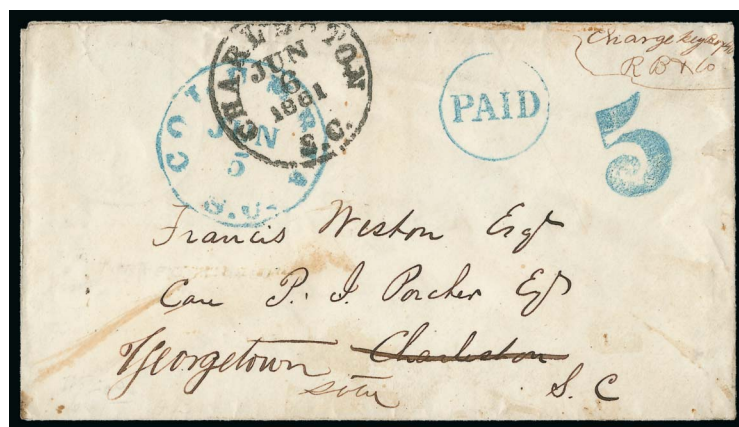 CHARLESTON
JUN
6
1861
S.C.
COLUMBIA
JUN
5
S.C.
PAID
5
Charge
R B & Co
Francis Weston Esqr
Care P. J. Porcher Esqr
Georgetown Charleston
S. C